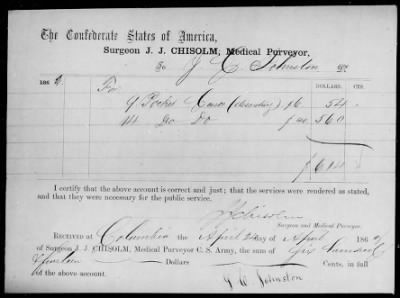 The Confederate States of America,
Surgeon J. J. CHISOLM, Medical Purveyor,
To J C Johnston Dr.
DOLLARS. CTS.
1862 For
9 Pocket Cases (dissecting) $6 54
14 Do Do $40 560
$614
I certify that the above account is correct and just; that the services were rendered as stated,
and that they were necessary for the public service.
JJ Chisolm
Surgeon and Medical Purveyor.
RECEIVED AT Columbia the April day of April 1862
of Surgeon J. J. CHISOLM, Medical Purveyor C. S. Army, the sum of Six Hundred
& fourteen Dollars Cents, in full
of the above account.
Johnston